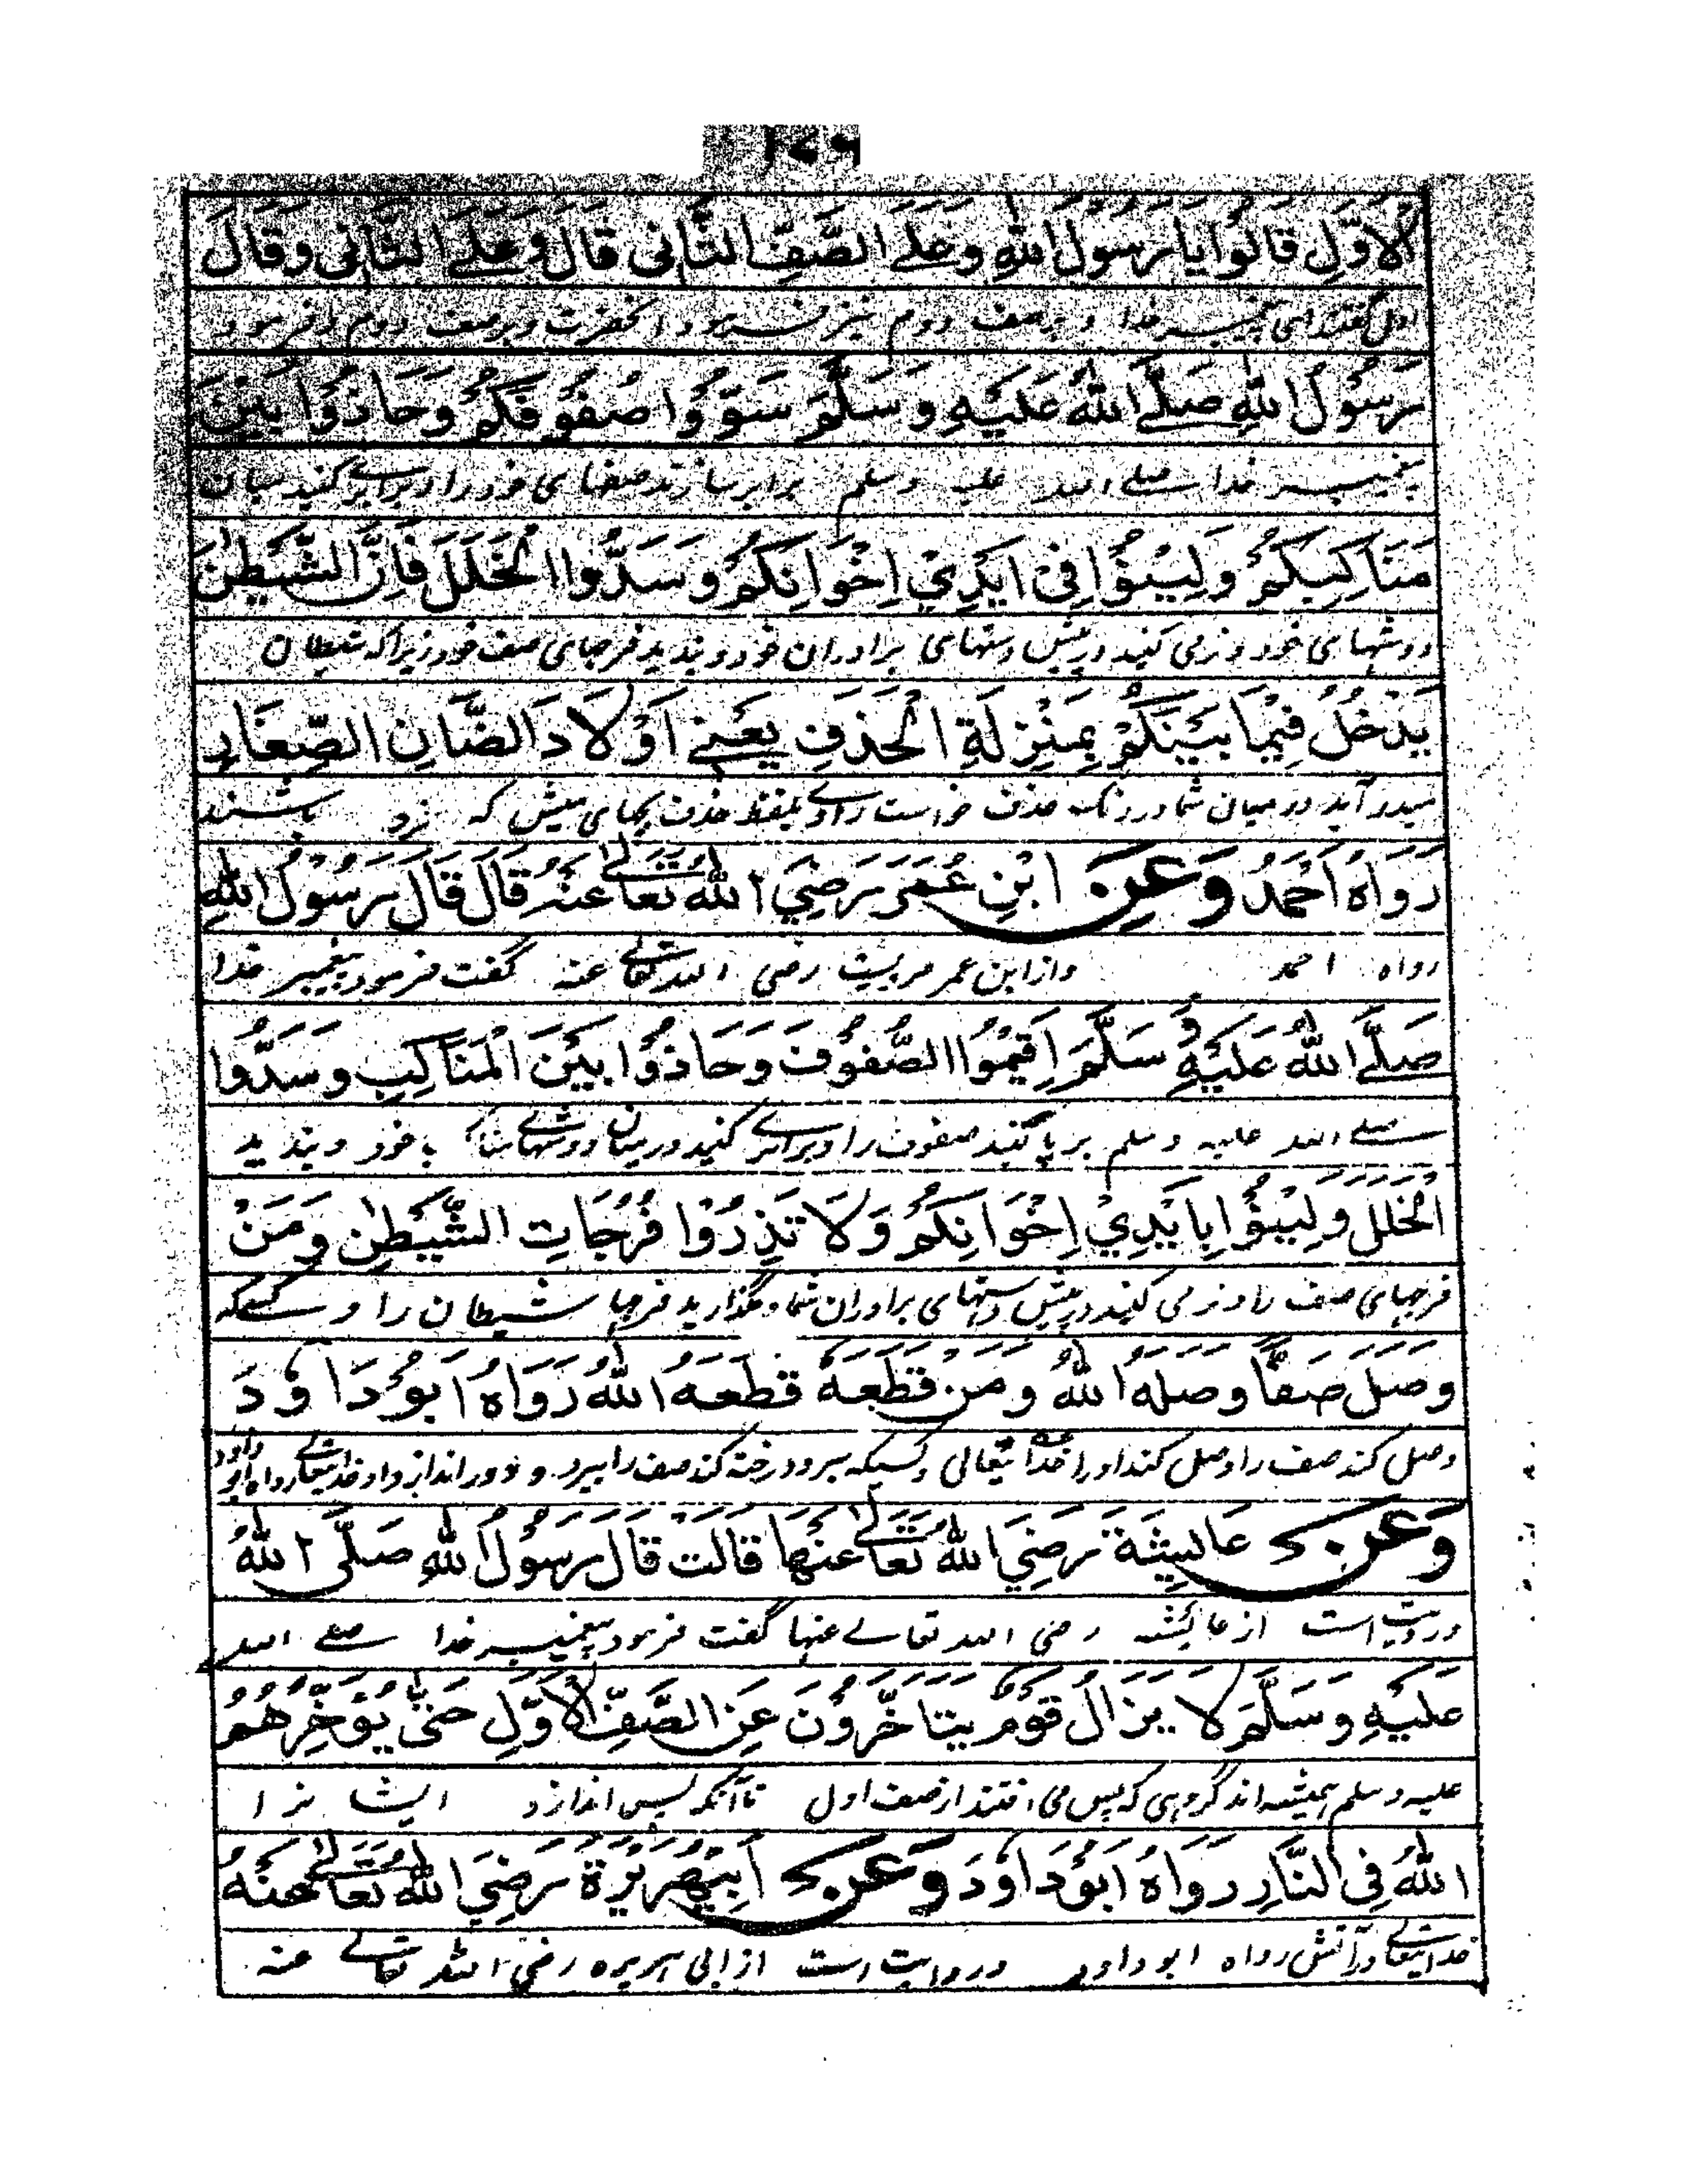 الْاَوَّلِ قَالُوْا يَا رَسُوْلَ اللّٰهِ وَعَلَے الصَّفِّ الثَّانِی قَالَ وَعَلَے الثَّانِی وَقَالَ
اول گفتند ای پیغمبر خدا و بر صف دوم نیز فرمود آنحضرت و بر صف دوم و فرمود
رَسُوْلُ اللّٰهِ صَلَّے اللّٰهُ عَلَيْهِ وَسَلَّمَ سَوُّوْا صُفُوْفَكُمْ وَحَاذُوْا بَيْنَ
پیغمبر خدا صلے اللہ علیہ وسلم برابر سازند صفهای خود را و برابری کنید میان
مَنَاكِبِكُمْ وَلِيْنُوْا فِیْ اَيْدِيْ اِخْوَانِكُمْ وَسَدُّوا الْخَلَلَ فَاِنَّ الشَّيْطٰنَ
دوشهای خود و نرمی کنید در پیش دستهای برادران خود و بندید فرجهای صف خود زیرا که شیطان
يَدْخُلُ فِيْمَا بَيْنَكُمْ بِمَنْزِلَةِ الْحَذَفِ يَعْنِے اَوْلَادَ الضَّانِ الصِّغَارِ
میدرآید در میان شما در رنگ حذف خواست راوی بلفظ حذف بچهای میش که خرد باشند
رَوَاهُ اَحْمَدُ وَعَنِ ابْنِ عُمَرَ رَضِيَ اللّٰهُ تَعَالٰے عَنْهُ قَالَ قَالَ رَسُوْلُ اللّٰهِ
رواه احمد واز ابن عمر مرویست رضی اللہ تعالے عنہ گفت فرمود پیغمبر خدا
صَلَّے اللّٰهُ عَلَيْهِ وَسَلَّمَ اَقِيْمُوا الصُّفُوْفَ وَحَاذُوْا بَيْنَ الْمَنَاكِبِ وَسَدُّوا
صلے اللہ علیہ وسلم برپا کنید صفوف را و برابری کنید در میان دوشها با خود و بندید
الْخَلَلَ وَلِيْنُوْا بِاَيْدِيْ اِخْوَانِكُمْ وَلَا تَذَرُوْا فُرُجَاتِ الشَّيْطٰنِ وَمَنْ
فرجهای صف را و نرمی کنید در پیش دستهای برادران شما و مگذارید فرجها شیطان را و کسیکه
وَصَلَ صَفًّا وَصَلَهُ اللّٰهُ وَمَنْ قَطَعَهٗ قَطَعَهُ اللّٰهُ رَوَاهُ اَبُوْ دَاوٗدَ
وصل کند صف را وصل کند او را خدا تعالی وکسیکه ببرد و رخنه کند صف را ببرد و دور اندازد او خدایتعالے رواه ابو داود
وَعَنْ عَائِشَةَ رَضِيَ اللّٰهُ تَعَالٰے عَنْهَا قَالَتْ قَالَ رَسُوْلُ اللّٰهِ صَلَّى اللّٰهُ
وروایت است از عائشہ رضی اللہ تعالے عنہا گفت فرمود پیغمبر خدا صلے اللہ
عَلَيْهِ وَسَلَّمَ لَا يَزَالُ قَوْمٌ يَتَاَخَّرُوْنَ عَنِ الصَّفِّ الْاَوَّلِ حَتّٰى يُؤَخِّرَهُمُ
علیہ وسلم ہمیشہ اند گروہی که پس می افتند از صف اول تا آنکه پس اندازد ایشانرا
اللّٰهُ فِی النَّارِ رَوَاهُ اَبُوْ دَاوٗدَ وَعَنْ اَبِیْ هُرَيْرَةَ رَضِيَ اللّٰهُ تَعَالٰے عَنْهُ
خدایتعالے در آتش رواه ابو داود وروایت است از ابی ہریرہ رضی اللہ تعالے عنہ